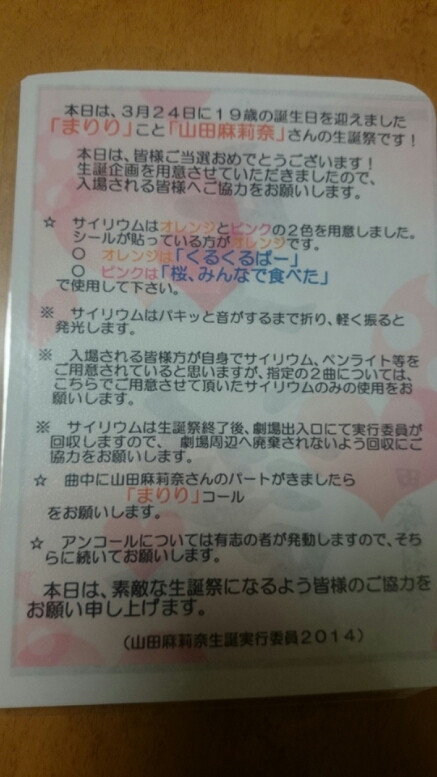 本日は、3月24日に19歳の誕生日を迎えました
「まりり」こと「山田麻莉奈」さんの生誕祭です!
本日は、皆様ご当選おめでとうございます!
生誕企画を用意させていただきましたので、
入場される皆様へご協力をお願いします。
☆ サイリウムはオレンジとピンクの2色を用意しました。
シールが貼っている方がオレンジです。
○ オレンジは「くるくるぱー」
○ ピンクは「桜、みんなで食べた」
で使用して下さい。
※ サイリウムはパキッと音がするまで折り、軽く振ると
発光します。
※ 入場される皆様方が自身でサイリウム、ペンライト等を
ご用意されていると思いますが、指定の2曲については、
こちらでご用意させて頂いたサイリウムのみの使用をお
願いします。
※ サイリウムは生誕祭終了後、劇場出入口にて実行委員が
回収しますので、 劇場周辺へ廃棄されないよう回収にご
協力をお願いします。
☆ 曲中に山田麻莉奈さんのパートがきましたら
「まりり」コール
をお願いします。
☆ アンコールについては有志の者が発動しますので、そち
らに続いてお願いします。
本日は、素敵な生誕祭になるよう皆様のご協力を
お願い申し上げます。
(山田麻莉奈生誕実行委員2014)